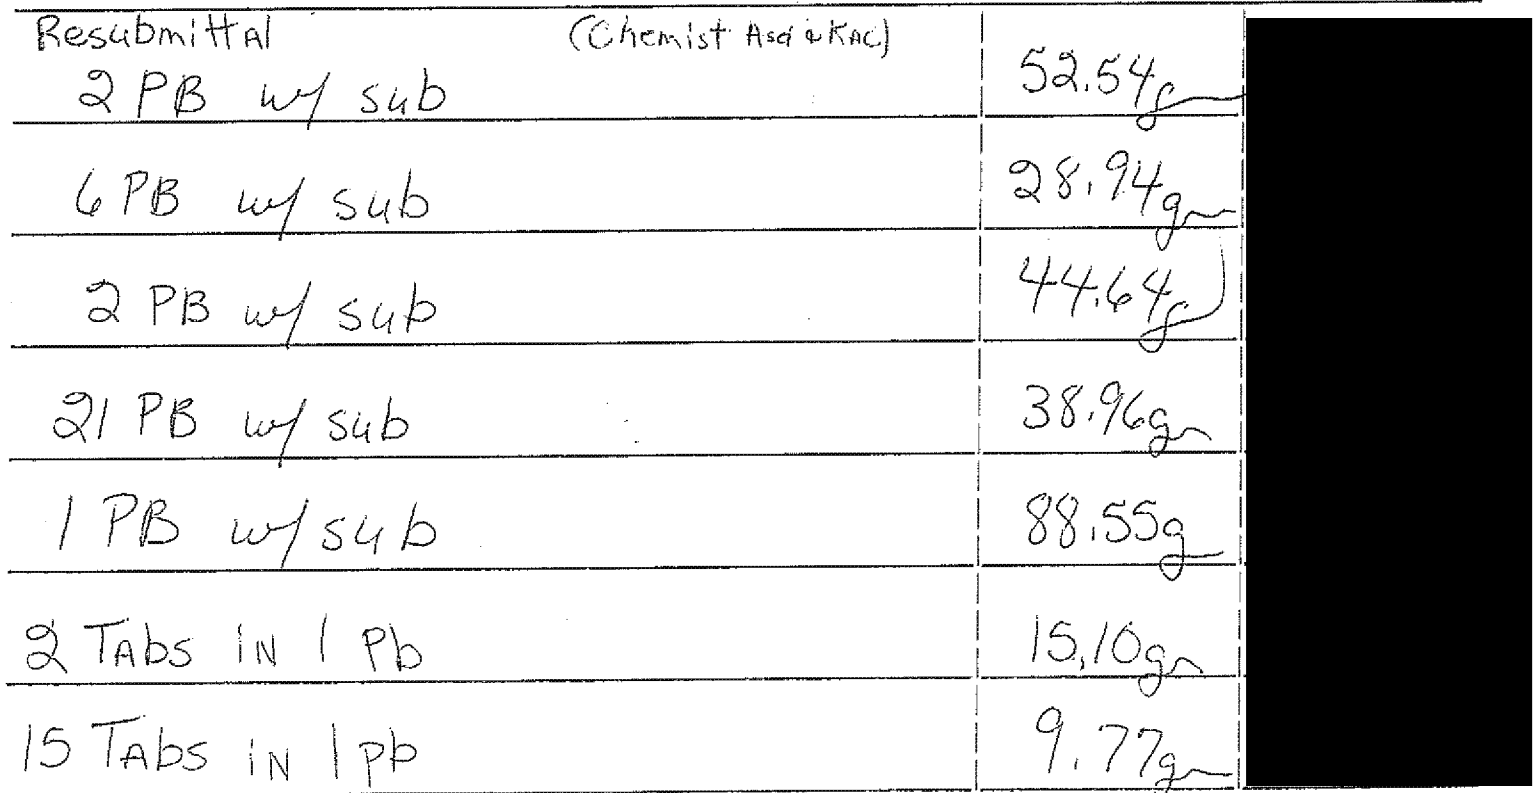 Resubmittal (Chemist ASD & KAC)
2 PB w/ sub 52.54g
6 PB w/ sub 28.94g
2 PB w/ sub 44.64g
21 PB w/ sub 38.96g
1 PB w/ sub 88.55g
2 Tabs in 1 Pb 15.10g
15 Tabs in 1 pb 9.77g